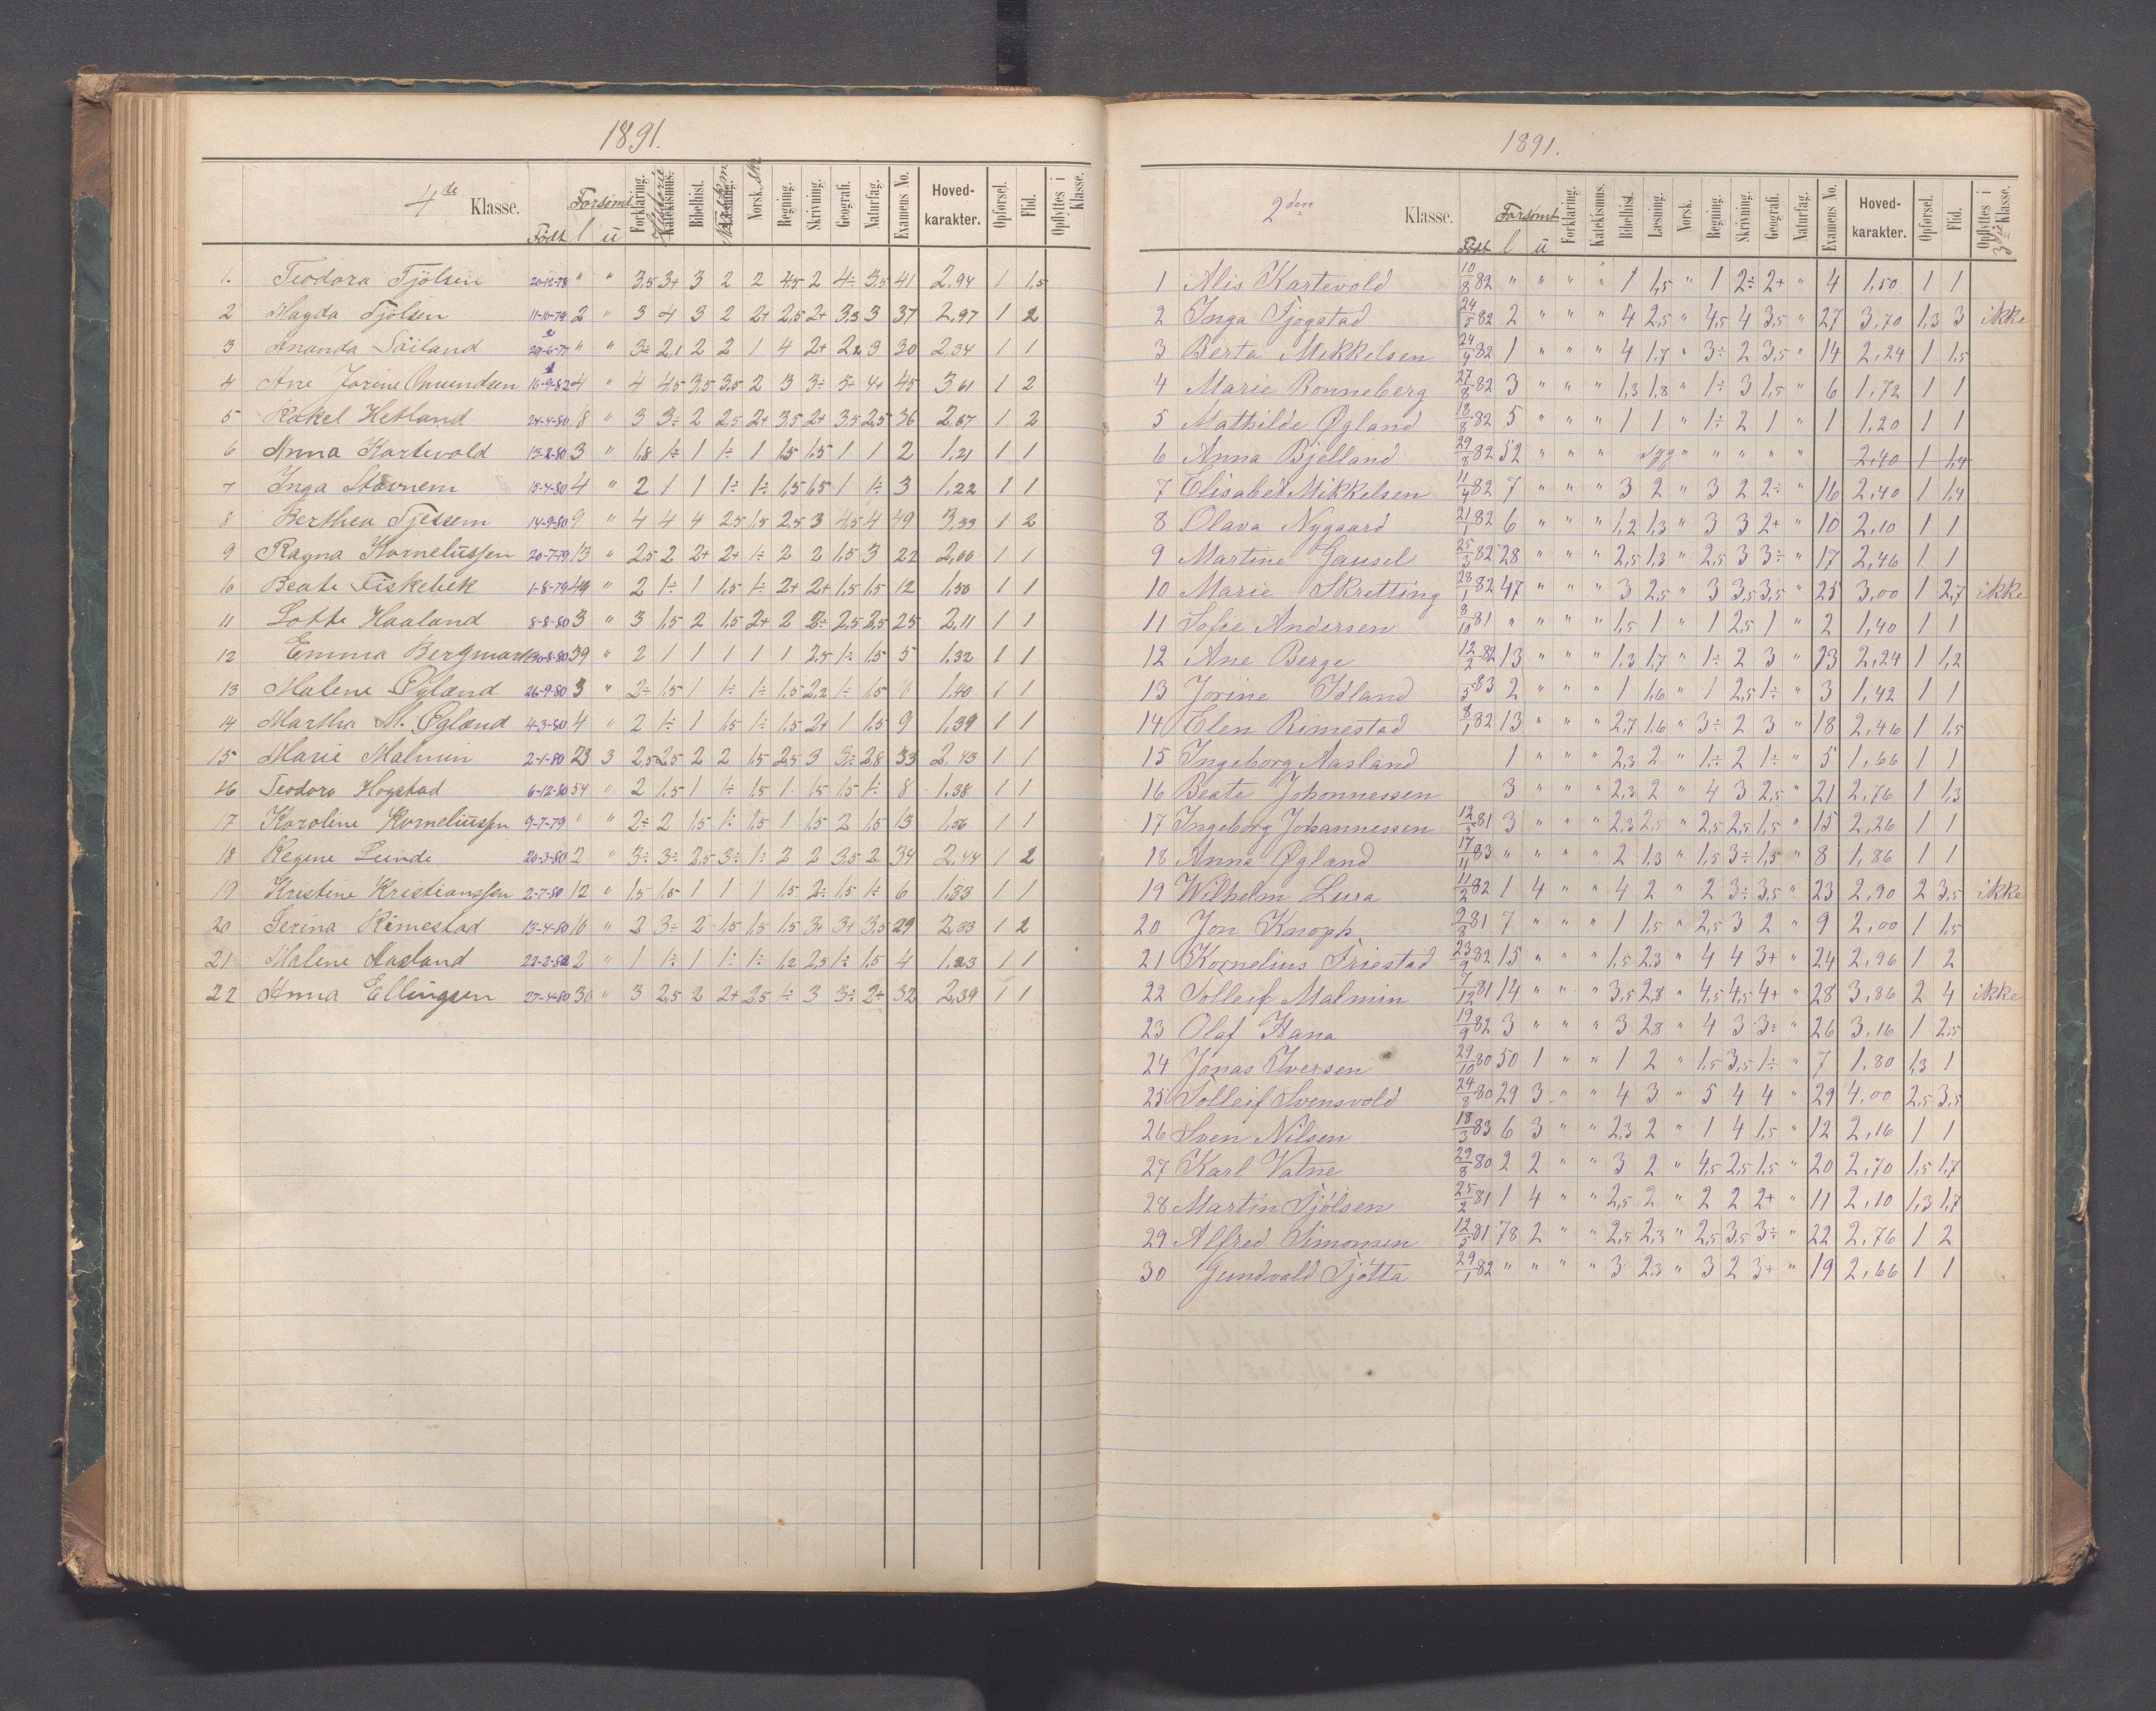 1891.
4de Klasse. Født Forsømt l u Forklaring. Historie Katekismus. Bibelhist. Norsk. Skr. Regning. Skrivning. Geografi. Naturfag. Examens No. Hoved-karakter. Opførsel. Flid. Opflyttes i Klasse.
1. Teodora Tjölsen 20-12-78 " " 3,5 3+ 3 2 2 4,5 2 4÷ 3,5 41 2,94 1 1,5
2 Magda Tjölsen 11-10-79 2 " 3 4 3 2 2+ 2,5 2+ 3,3 3 37 2,97 1 2
3 Ananda Söiland " " 3÷ 2,1 2 2 1 4 2+ 2,2 3 30 2,34 1 1
4 Ane Jorine Omundsen 16-9-82 4 " 4 4,5 3,5 3,5 2 3 3÷ 5+ 4+ 45 3,61 1 2
5 Rakel Hetland 24-4-80 8 " 3 3÷ 2 2,5 2+ 3,5 2+ 3,5 2,5 36 2,67 1 2
6 Anna Kartevold 13-2-80 3 " 1,8 1÷ 1 1÷ 1 1,5 1,5 1 1 2 1,21 1 1
7 Inga Stavnem 15-4-80 4 " 2 1 1 1÷ 1÷ 1,5 1,5 1 1÷ 3 1,22 1 1
8 Berthea Tjessem 14-9-80 9 " 4 4 4 2,5 1,5 2,5 3 4,5 4 49 3,33 1 2
9 Ragna Kornelüssen 20-7-79 13 " 2,5 2 2+ 2+ 1÷ 2 2 1,5 3 22 2,00 1 1
10 Beate Fiskebek 1-8-79 49 " 2 1÷ 1 1,5 1÷ 2+ 2+ 1,5 1,5 12 1,50 1 1
11 Lotte Haaland 8-8-80 3 " 3 1,5 2 1,5 2+ 2 2÷ 2,5 2,5 25 2,11 1 1
12 Emma Bergmark 30-8-80 39 " 2 1 1 1 1 1 2,5 1÷ 1,5 5 1,32 1 1
13 Malene Øgland 26-9-80 3 " 2÷ 1,5 1 1÷ 1÷ 1,5 2,2 1÷ 1,5 1,40 1 1
14 Martha M. Øgland 4-3-80 4 " 2 1÷ 1 1,5 1÷ 1,5 2+ 1 1,5 9 1,39 1 1
15 Marie Malmin 2-1-80 23 3 2,5 2,5 2 2 1,5 2,5 3 3÷ 2,8 33 2,43 1 1
16 Teodora Hogstad 6-12-80 54 " 2 1,5 1 1÷ 1,5 1 1,5 1,5 1÷ 8 1,38 1 1
17 Karoline Korneliussen 9-7-79 " " 2÷ 2 1,5 1÷ 1,5 1 1,5 2 1,5 13 1,56 1 1
18 Regine Lunde 20-3-80 2 " 3÷ 3÷ 2,5 3÷ 1÷ 2 2 3,5 2 34 2,44 1 2
19 Kristine Kristianssen 2-7-80 12 " 1,5 1,5 1 1 1 1,5 2÷ 1,5 1÷ 6 1,33 1 1
20 Serina Rimestad 13-4-80 10 " 2 3÷ 2 1,5 1,5 1,5 3+ 3+ 3,5 29 2,33 1 2
21 Malene Aasland 2 " 1 1÷ 1 1÷ 1÷ 1,2 2,5 1÷ 1,5 4 1,23 1 1
22 Anna Ellingsen 27-4-80 30 " 3 2,5 2 2+ 2,5 1÷ 3 3÷ 2+ 32 2,39 1 1
1891.
2den Klasse. Født Forsømt l ü Forklaring. Katekismus. Bibelhist. Læsning. Norsk. Regning. Skrivning. Geografi. Naturfag. Examens No. Hoved-karakter. Opførsel. Flid. Opflyttes i 3die Klasse.
1 Alis Kartevold 10/8 82 " " " " 1 1,5 " 1 2÷ 2+ " 4 1,50 1 1
2 Inga Tjogstad 24/5 82 2 " " " 4 2,5 " 4,5 4 3,5 " 27 3,70 1,3 3 ikke
3 Berta Mikkelsen 24/4 82 1 " " " 4 1,7 " 3÷ 2 3,5 " 14 2,24 1 1,5
4 Marie Ronneberg 27/8 82 3 " " " 1,3 1,8 " 1÷ 3 1,5 " 6 1,72 1 1
5 Mathilde Øgland 18/8 82 5 " " " 1 1 " 1÷ 2 1 " 1 1,20 1 1
6 Anna Bjelland 29/8 82 52 " " " syg " " " " " 2,40 1 1,4
7 Elisabet Mikkelsen 11/4 82 7 " " " 3 2 " 3 2 2÷ " 16 2,40 1 1,4
8 Olava Nygaard 21/1 82 6 " " " 1,2 1,3 " 3 3 2+ " 10 2,10 1 1
9 Martine Gausel 25/3 82 28 " " " 2,5 1,3 " 2,5 3 3÷ " 17 2,46 1 1
10 Marie Skretting 28/1 82 47 " " " 3 2,5 " 3 3,5 3,5 " 25 3,00 1 2,7 ikke
11 Sofie Andersen 8/10 81 " " " " 1,5 1 " 1 2,5 1 " 2 1,40 1 1
12 Ane Berge 12/2 82 13 " " " 1,3 1,7 " 1÷ 2 3 " 13 2,24 1 1,2
13 Jorine Idland /5 83 2 " " " 1 1,6 " 1 2,5 1÷ " 3 1,42 1 1
14 Elen Rimestad 8/1 82 13 " " " 2,7 1,6 " 3÷ 2 3 " 18 2,46 1 1,5
15 Ingeborg Aasland 1 " " " 2,3 2 " 1÷ 2 1÷ " 5 1,66 1 1
16 Beate Johannessen 3 " " " 2,3 2 " 4 3 2,5 " 21 2,76 1 1,3
17 Ingeborg Johannessen 12/5 81 3 " " " 2,3 2,5 " 2,5 2,5 1,5 " 15 2,26 1 1
18 Anna Øgland 17/11 83 " " " " 2 1,3 " 1,5 3÷ 1,5 " 8 1,86 1 1
19 Wilhelm Lura 11/2 82 1 4 " " 4 2 " 2 3÷ 3,5 " 23 2,90 2 3,5 ikke
20 Jon Knoph 2/8 81 7 " " " 1 1,5 " 2,5 3 2 " 9 2,00 1 1,5
21 Kornelius Friestad 23/9 82 15 " " " 1,5 2,3 " 4 4 3+ " 24 2,96 1 2
22 Tolleif Malmin 7/12 81 14 " " " 3,5 2,8 " 4,5 4,5 4+ " 28 3,86 2 4 ikke
23 Olaf Hana 19/9 82 3 " " " 3 2,8 " 4 3 3÷ " 26 3,16 1 2,5
24 Jonas Iversen 29/10 80 50 1 " " 1 2 " 1,5 3,5 1÷ " 7 1,80 1,3 1
25 Tolleif Svensvold 24/8 80 29 3 " " 4 3 " 5 4 4 " 29 4,00 2,5 3,5
26 Sven Nilsen 18/3 83 6 3 " " 2,3 2 " 1 4 1,5 " 12 2,16 1 1
27 Karl Vatne 29/8 80 2 2 " " 3 2 " 4,5 2,5 1,5 " 20 2,70 1,5 1,7
28 Martin Tjölsen 25/2 81 1 4 " " 2,5 2 " 2 2 2+ " 11 2,10 1,3 1,7
29 Alfred Simonsen 12/5 81 78 2 " " 2,5 2,3 " 2,5 3,5 3÷ " 22 2,76 1 2
30 Gundvald Tjötta 29/1 82 " " " " 3 2,3 " 3 2 3+ " 19 2,66 1 1